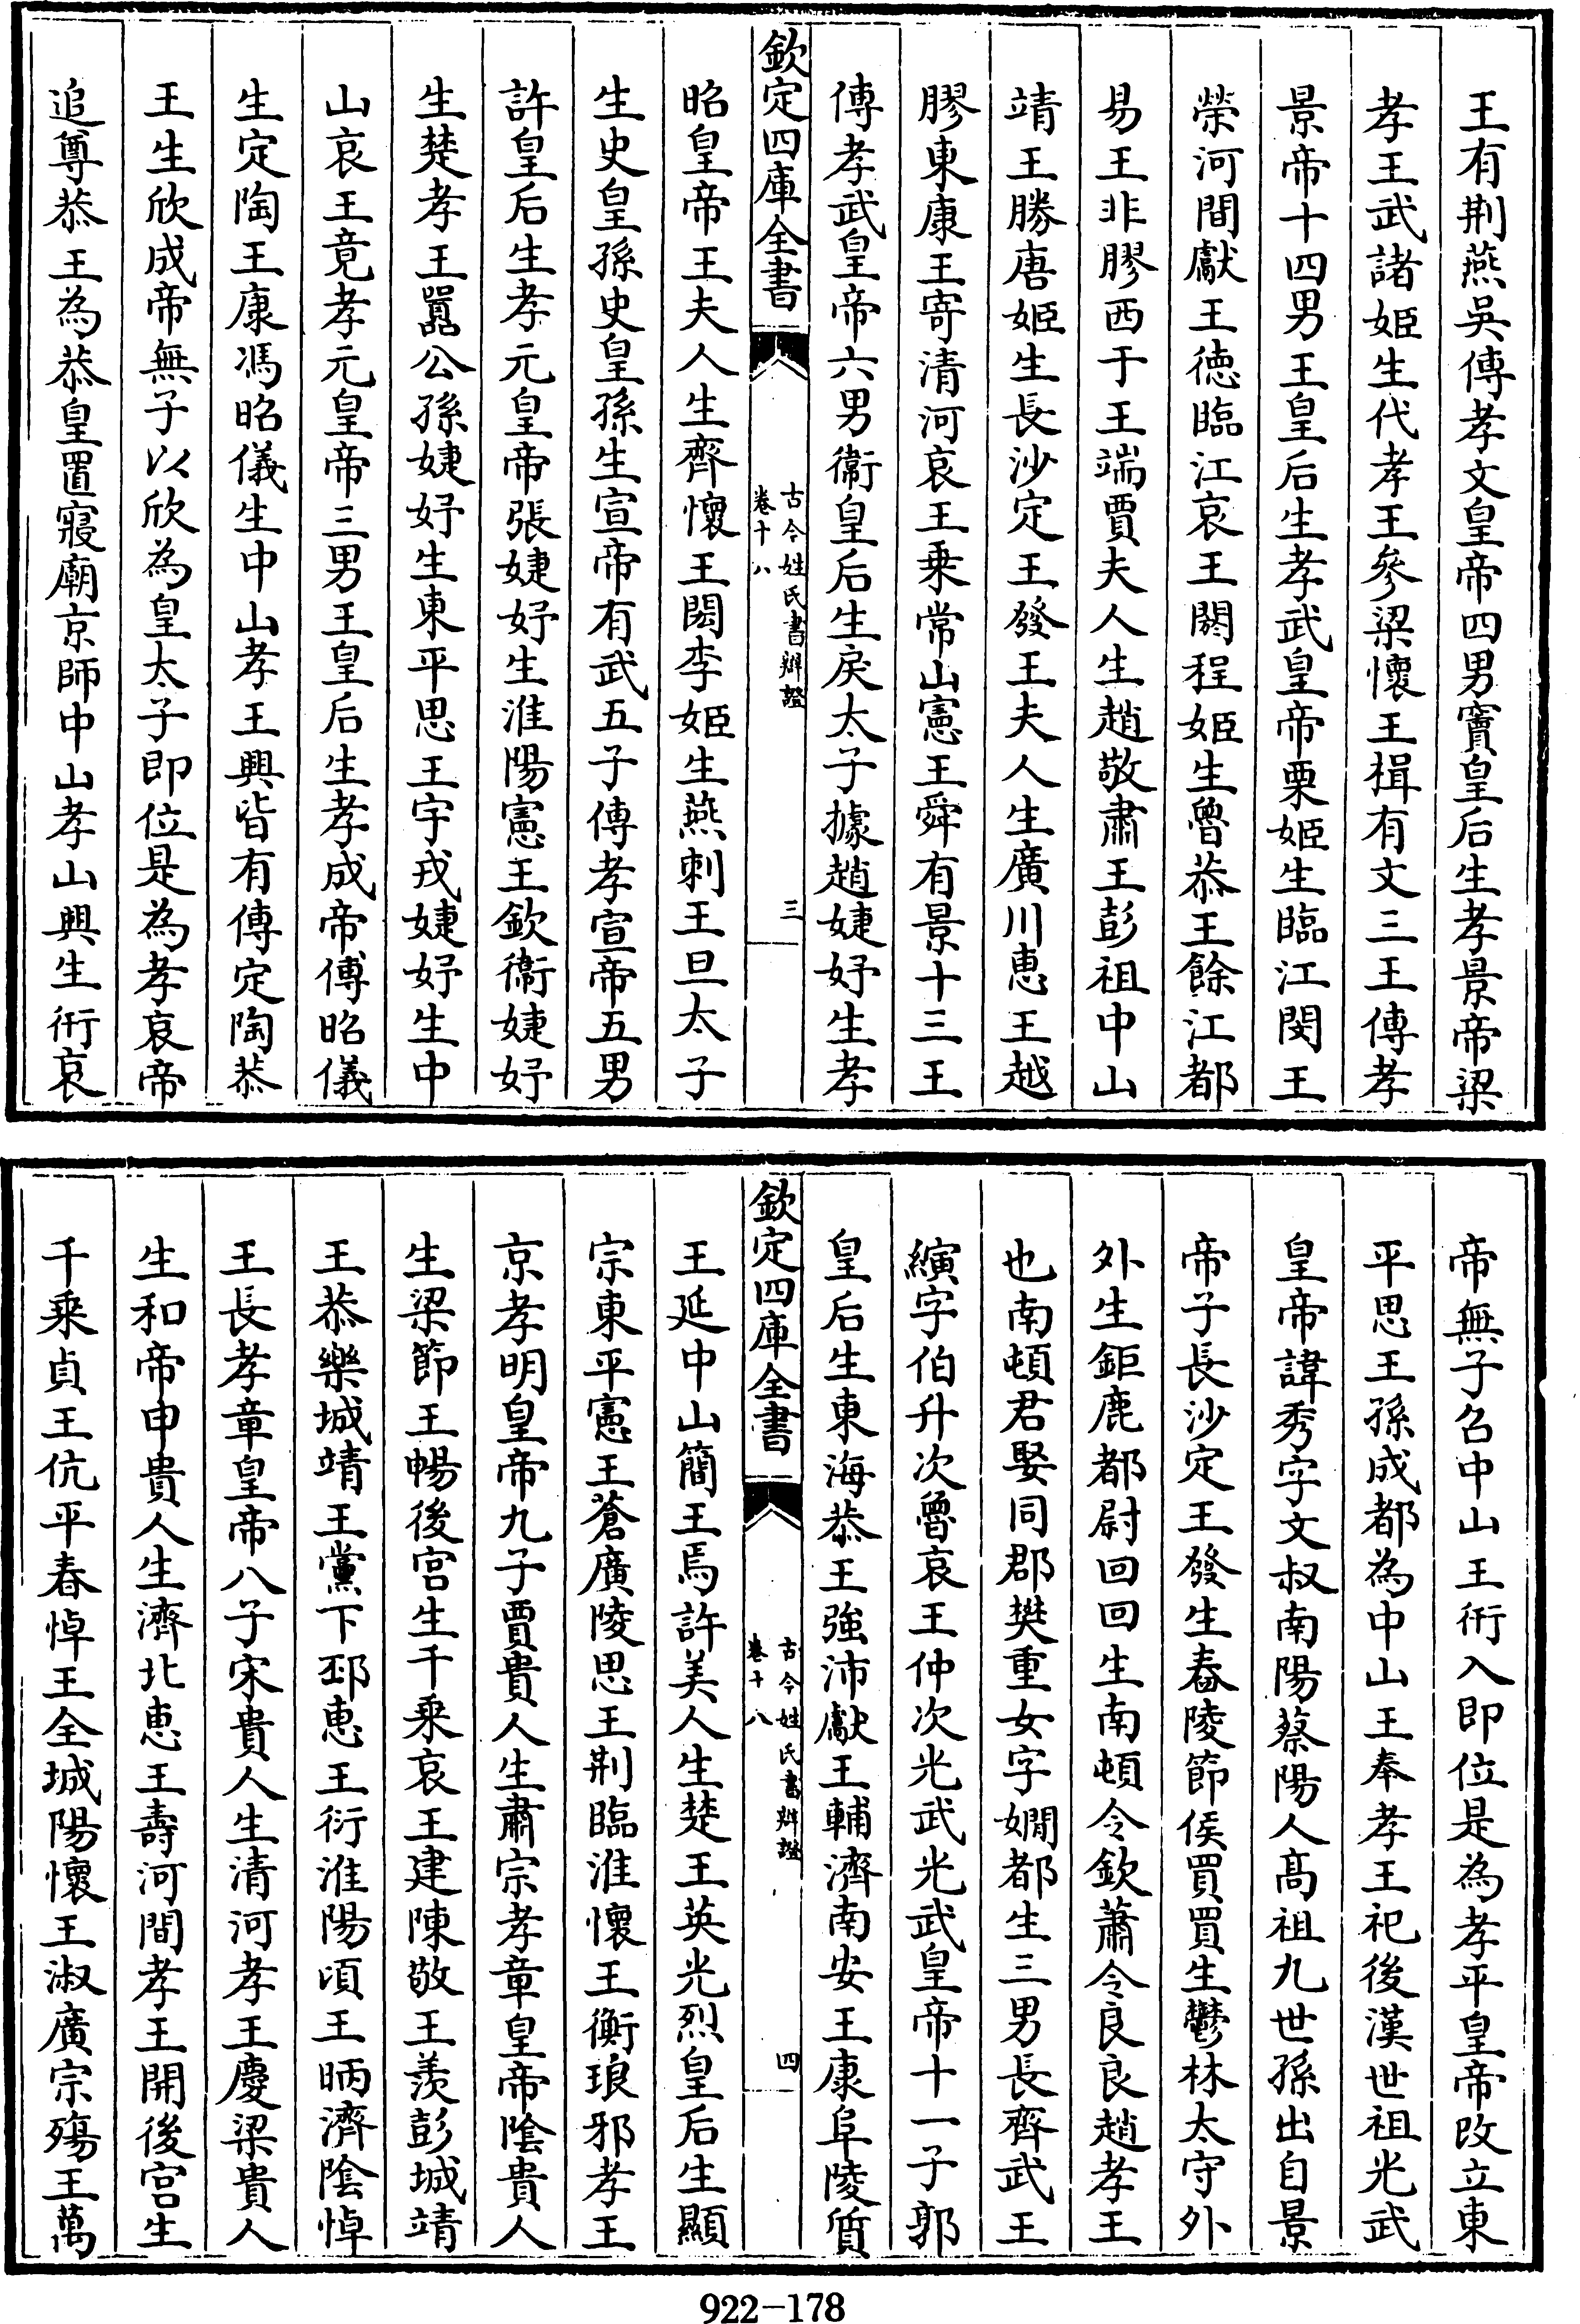 王有荆燕吳傳孝文皇帝四男竇皇后生孝景帝梁
孝王武諸姬生代孝王參梁懷王楫有文三王傳孝
景帝十四男王皇后生孝武皇帝栗姬生臨江閔王
榮河間獻王徳臨江哀王閼程姬生魯恭王餘江都
易王非膠西于王端賈夫人生趙敬肅王彭祖中山
靖王勝唐姬生長沙定王發王夫人生廣川惠王越
膠東康王寄清河哀王乗常山憲王舜有景十三王
傳孝武皇帝六男衞皇后生戾太子據趙婕妤生孝
欽定四庫全書
古今姓氏書辯證
卷十八
三
昭皇帝王夫人生齊懷王閎李姬生燕刺王旦太子
生史皇孫史皇孫生宣帝有武五子傳孝宣帝五男
許皇后生孝元皇帝張婕妤生淮陽憲王欽衞婕妤
生楚孝王囂公孫婕妤生東平思王宇戎婕妤生中
山哀王竟孝元皇帝三男王皇后生孝成帝傅昭儀
生定陶王康馮昭儀生中山孝王興皆有傳定陶恭
王生欣成帝無子以欣為皇太子即位是為孝哀帝
追尊恭王為恭皇置寢廟京師中山孝山興生衎哀
帝無子召中山王衎入即位是為孝平皇帝改立東
平思王孫成都為中山王奉孝王祀後漢世祖光武
皇帝諱秀字文叔南陽蔡陽人高祖九世孫出自景
帝子長沙定王發生舂陵節侯買買生鬱林太守外
外生鉅鹿都尉回回生南頓令欽蕭令良良趙孝王
也南頓君娶同郡樊重女字嫺都生三男長齊武王
縯字伯升次魯哀王仲次光武光武皇帝十一子郭
皇后生東海恭王強沛獻王輔濟南安王康阜陵質
欽定四庫全書
古今姓氏書辯證
卷十八
四
王延中山簡王焉許美人生楚王英光烈皇后生顯
宗東平憲王蒼廣陵思王荆臨淮懷王衡琅邪孝王
京孝明皇帝九子賈貴人生肅宗孝章皇帝陰貴人
生梁節王暢後宫生千乗哀王建陳敬王羨彭城靖
王恭樂城靖王黨下邳恵王衍淮陽頃王昞濟陰悼
王長孝章皇帝八子宋貴人生清河孝王慶梁貴人
生和帝申貴人生濟北恵王壽河間孝王開後宫生
千乗貞王伉平春悼王全城陽懷王淑廣宗殤王萬
922-178